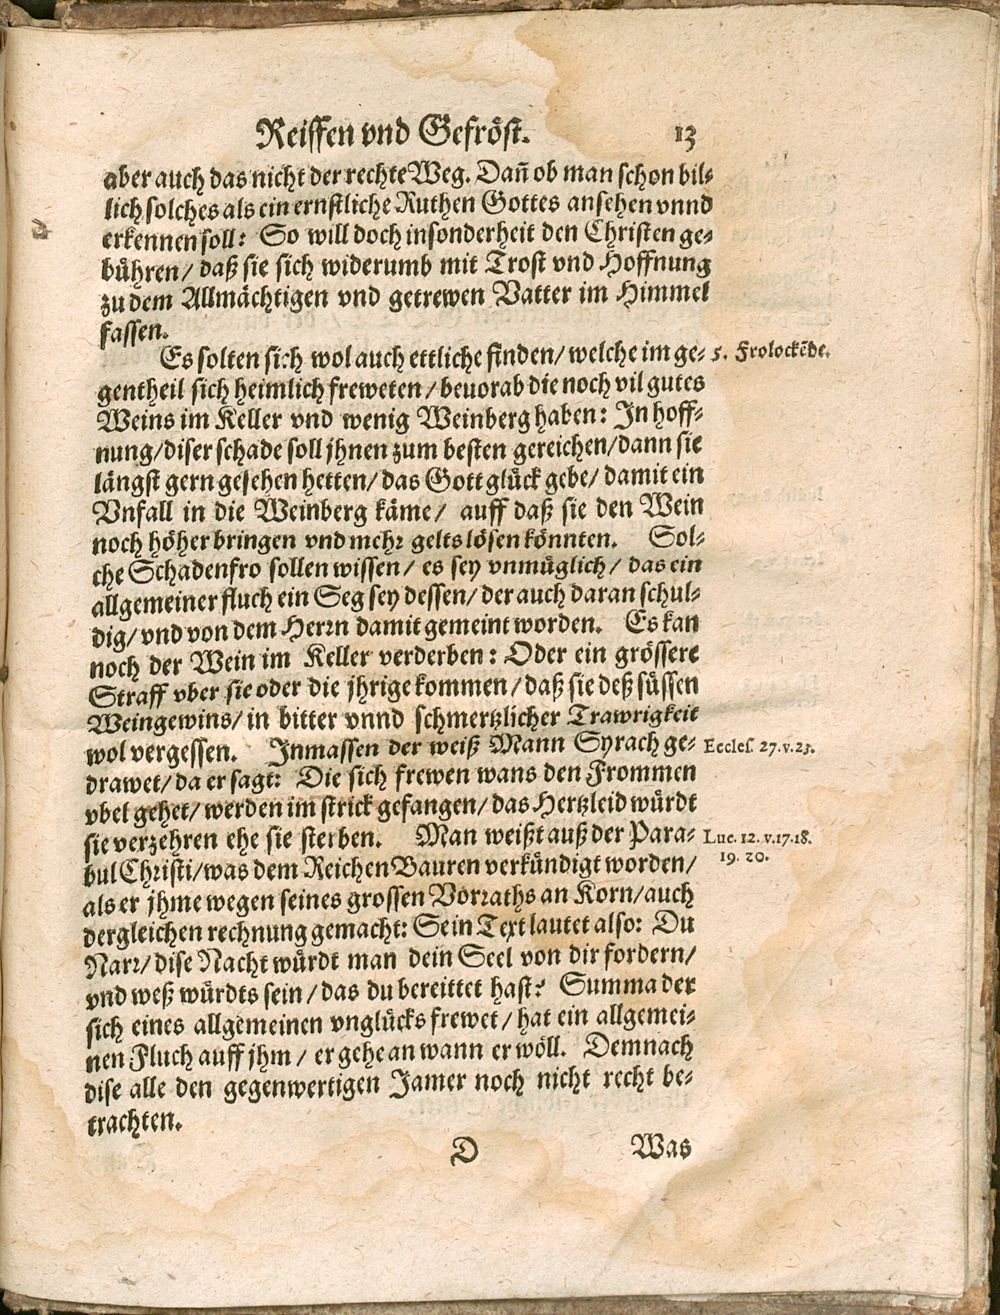 Reiffen vnd Gefröst. 13
aber auch das nicht der rechte Weg. Dañ ob man schon bil-
lich solches als ein ernstliche Ruthen Gottes ansehen vnnd
erkennen soll: So will doch insonderheit den Christen ge-
bühren/ daß sie sich widerumb mit Trost vnd Hoffnung
zu dem Allmächtigen vnd getrewen Vatter im Himmel
fassen.
Es solten sich wol auch ettliche finden/ welche im ge- 5. Frolockẽde.
gentheil sich heimlich freweten/ beuorab die noch vil gutes
Weins im Keller vnd wenig Weinberg haben: In hoff-
nung/ diser schade soll jhnen zum besten gereichen/ dann sie
längst gern gesehen hetten/ das Gott glück gebe/ damit ein
Vnfall in die Weinberg käme/ auff daß sie den Wein
noch höher bringen vnd mehr gelts lösen könnten. Sol-
che Schadenfro sollen wissen/ es sey vnmüglich/ das ein
allgemeiner fluch ein Seg sey dessen/ der auch daran schul-
dig/ vnd von dem Herrn damit gemeint worden. Es kan
noch der Wein im Keller verderben: Oder ein grössere
Straff vber sie oder die jhrige kommen/ daß sie deß süssen
Weingewins/ in bitter vnnd schmertzlicher Trawrigkeit
wol vergessen. Inmassen der weiß Mann Syrach ge- Eccles. 27. v. 23.
drawet/ da er sagt: Die sich frewen wans den Frommen
vbel gehet/ werden im strick gefangen/ das Hertzleid würdt
sie verzehren ehe sie sterben. Man weißt auß der Para- Luc. 12. v. 17. 18.
19. 20.
bul Christi/ was dem Reichen Bauren verkündigt worden/
als er jhme wegen seines grossen Vorraths an Korn/ auch
dergleichen rechnung gemacht: Sein Text lautet also: Du
Narr/ dise Nacht würdt man dein Seel von dir fordern/
vnd weß würdts sein/ das du bereittet hast? Summa der
sich eines allgemeinen vnglücks frewet/ hat ein allgemei-
nen Fluch auff jhm/ er gehe an wann er wöll. Demnach
dise alle den gegenwertigen Jamer noch nicht recht be-
trachten.
D Was